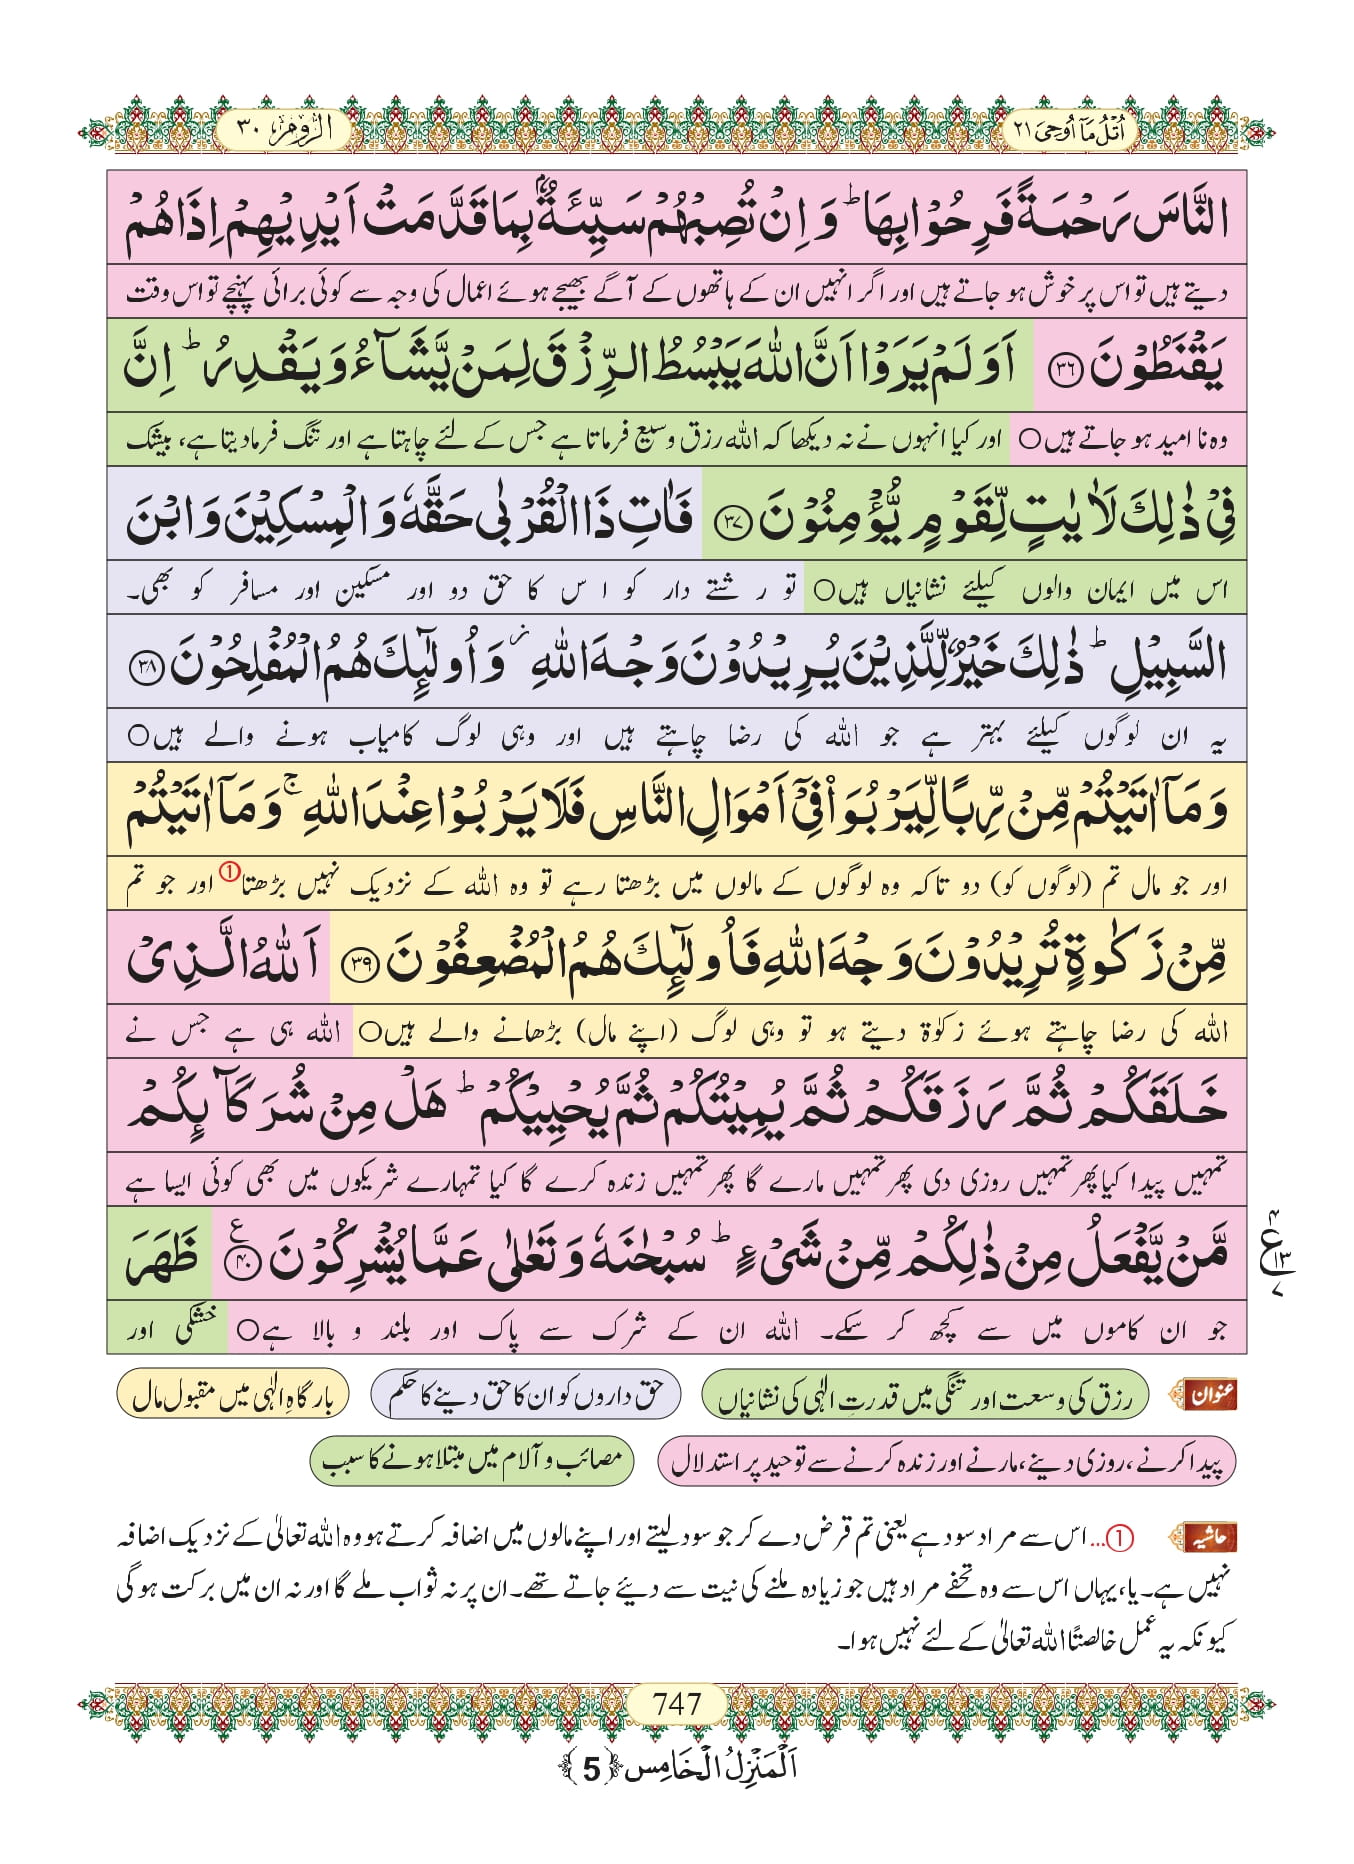 اُتْلُ مَاۤ اُوْحِیَ ۲۱
الروم ۳۰
النَّاسَ رَحْمَةً فَرِحُوْا بِهَا ؕ وَ اِنْ تُصِبْهُمْ سَیِّئَةٌۢ بِمَا قَدَّمَتْ اَیْدِیْهِمْ اِذَا هُمْ
دیتے ہیں تو اس پر خوش ہو جاتے ہیں اور اگر انہیں ان کے ہاتھوں کے آگے بھیجے ہوئے اعمال کی وجہ سے کوئی برائی پہنچے تو اس وقت
یَقْنَطُوْنَ ﴿۳۶﴾ اَوَ لَمْ یَرَوْا اَنَّ اللّٰهَ یَبْسُطُ الرِّزْقَ لِمَنْ یَّشَآءُ وَ یَقْدِرُ ؕ اِنَّ
وہ نا امید ہو جاتے ہیں○ اور کیا انہوں نے نہ دیکھا کہ اللہ رزق وسیع فرماتا ہے جس کے لئے چاہتا ہے اور تنگ فرمادیتا ہے، بیشک
فِیْ ذٰلِكَ لَاٰیٰتٍ لِّقَوْمٍ یُّؤْمِنُوْنَ ﴿۳۷﴾ فَاٰتِ ذَا الْقُرْبٰى حَقَّهٗ وَ الْمِسْكِیْنَ وَ ابْنَ
اس میں ایمان والوں کیلئے نشانیاں ہیں○ تو رشتے دار کو اس کا حق دو اور مسکین اور مسافر کو بھی۔
السَّبِیْلِ ؕ ذٰلِكَ خَیْرٌ لِّلَّذِیْنَ یُرِیْدُوْنَ وَجْهَ اللّٰهِ ؗ وَ اُولٰٓىٕكَ هُمُ الْمُفْلِحُوْنَ ﴿۳۸﴾
یہ ان لوگوں کیلئے بہتر ہے جو اللہ کی رضا چاہتے ہیں اور وہی لوگ کامیاب ہونے والے ہیں○
وَ مَاۤ اٰتَیْتُمْ مِّنْ رِّبًا لِّیَرْبُوَاۡ فِیْۤ اَمْوَالِ النَّاسِ فَلَا یَرْبُوْا عِنْدَ اللّٰهِ ۚ وَ مَاۤ اٰتَیْتُمْ
اور جو مال تم (لوگوں کو) دو تاکہ وہ لوگوں کے مالوں میں بڑھتا رہے تو وہ اللہ کے نزدیک نہیں بڑھتا① اور جو تم
مِّنْ زَكٰوةٍ تُرِیْدُوْنَ وَجْهَ اللّٰهِ فَاُولٰٓىٕكَ هُمُ الْمُضْعِفُوْنَ ﴿۳۹﴾ اَللّٰهُ الَّذِیْ
اللہ کی رضا چاہتے ہوئے زکوٰۃ دیتے ہو تو وہی لوگ (اپنے مال) بڑھانے والے ہیں○ اللہ ہی ہے جس نے
خَلَقَكُمْ ثُمَّ رَزَقَكُمْ ثُمَّ یُمِیْتُكُمْ ثُمَّ یُحْیِیْكُمْ ؕ هَلْ مِنْ شُرَكَآىٕكُمْ
تمہیں پیدا کیا پھر تمہیں روزی دی پھر تمہیں مارے گا پھر تمہیں زندہ کرے گا کیا تمہارے شریکوں میں بھی کوئی ایسا ہے
مَّنْ یَّفْعَلُ مِنْ ذٰلِكُمْ مِّنْ شَیْءٍ ؕ سُبْحٰنَهٗ وَ تَعٰلٰى عَمَّا یُشْرِكُوْنَ ﴿۴۰﴾ ع ظَهَرَ
۴ ع ۱۳ ۷
جو ان کاموں میں سے کچھ کر سکے۔ اللہ ان کے شرک سے پاک اور بلند و بالا ہے○ خشکی اور
عنوان رزق کی وسعت اور تنگی میں قدرتِ الٰہی کی نشانیاں حق داروں کو ان کا حق دینے کا حکم بارگاہِ الٰہی میں مقبول مال
پیدا کرنے ، روزی دینے، مارنے اور زندہ کرنے سے توحید پر استدلال مصائب و آلام میں مبتلا ہونے کا سبب
حاشیہ ①... اس سے مراد سود ہے یعنی تم قرض دے کر جو سود لیتے اور اپنے مالوں میں اضافہ کرتے ہو وہ اللہ تعالیٰ کے نزدیک اضافہ
نہیں ہے۔ یا، یہاں اس سے وہ تحفے مراد ہیں جو زیادہ ملنے کی نیت سے دیئے جاتے تھے۔ ان پر نہ ثواب ملے گا اور نہ ان میں برکت ہوگی
کیونکہ یہ عمل خالصتاً اللہ تعالیٰ کے لئے نہیں ہوا۔
747
اَلْمَنْزِلُ الْخَامِس ﴿5﴾